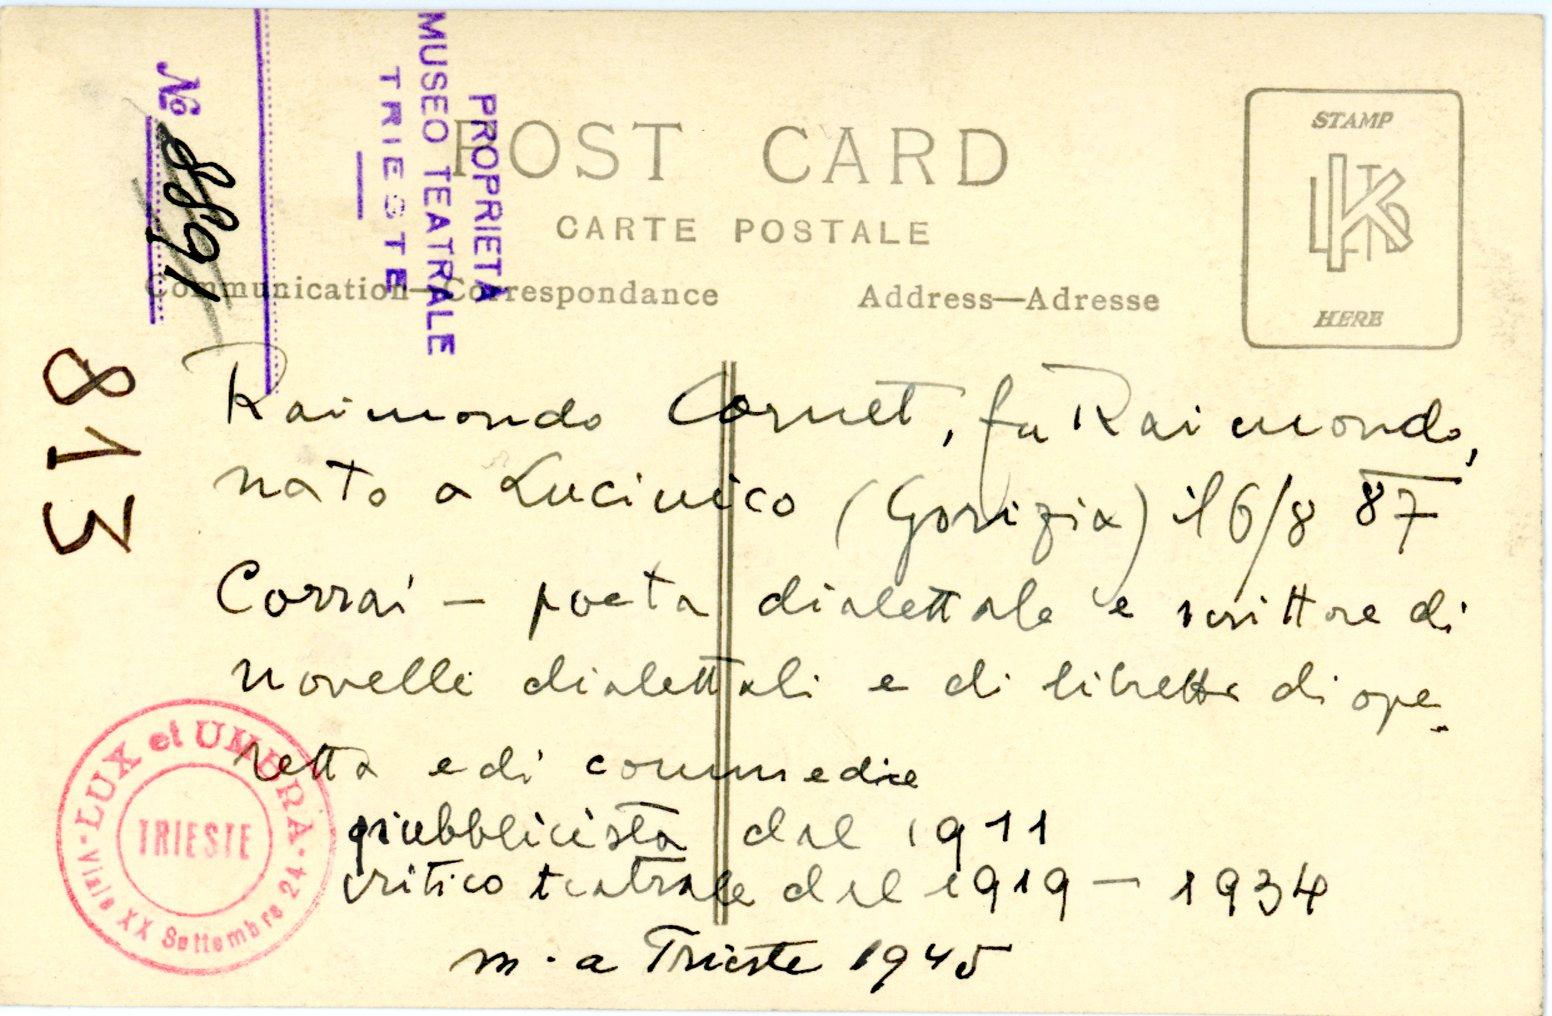 No 8891
PROPRIETÀ
MUSEO TEATRALE
TRIESTE
POST CARD
CARTE POSTALE
Communication—Correspondance
Address—Adresse
STAMP
HERE
813
Raimondo Cornet, fu Raimondo,
nato a Lucinico (Gorizia) il 6/8 87
Corrai – poeta dialettale e scrittore di
novelle dialettali e di libretti di ope
retta e di commedie
pubblicista dal 1911
critico teatrale dal 1919 – 1934
m. a Trieste 1945
LUX et UMBRA
TRIESTE
Viale XX Settembre 24